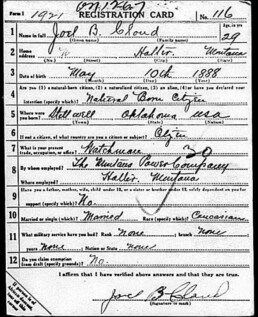 Form 1
REGISTRATION CARD
No. 116
1 Name in full Joel B. Cloud
(Given name) (Family name)
Age, in yrs.
29
2 Home address Halter, Montana
3 Date of birth May 10th 1888
(Month) (Day) (Year)
4 Are you (1) a natural-born citizen, (2) a naturalized citizen, (3) an alien, (4) or have you declared your
intention (specify which)? Natural Born Citizen
5 Where were you born? Stillwell Oklahoma USA
(Town) (State) (Nation)
6 If not a citizen, of what country are you a citizen or subject? Citizen
7 What is your present trade, occupation, or office? Watchman
8 By whom employed? The Montana Power Company
Where employed? Halter, Montana
9 Have you a father, mother, wife, child under 12, or a sister or brother under 12, solely dependent on you for
support (specify which)? No.
10 Married or single (which)? Married Race (specify which)? Caucasian
11 What military service have you had? Rank none; branch none
years none; Nation or State none
12 Do you claim exemption from draft (specify grounds)? No.
I affirm that I have verified above answers and that they are true.
Joel B Cloud